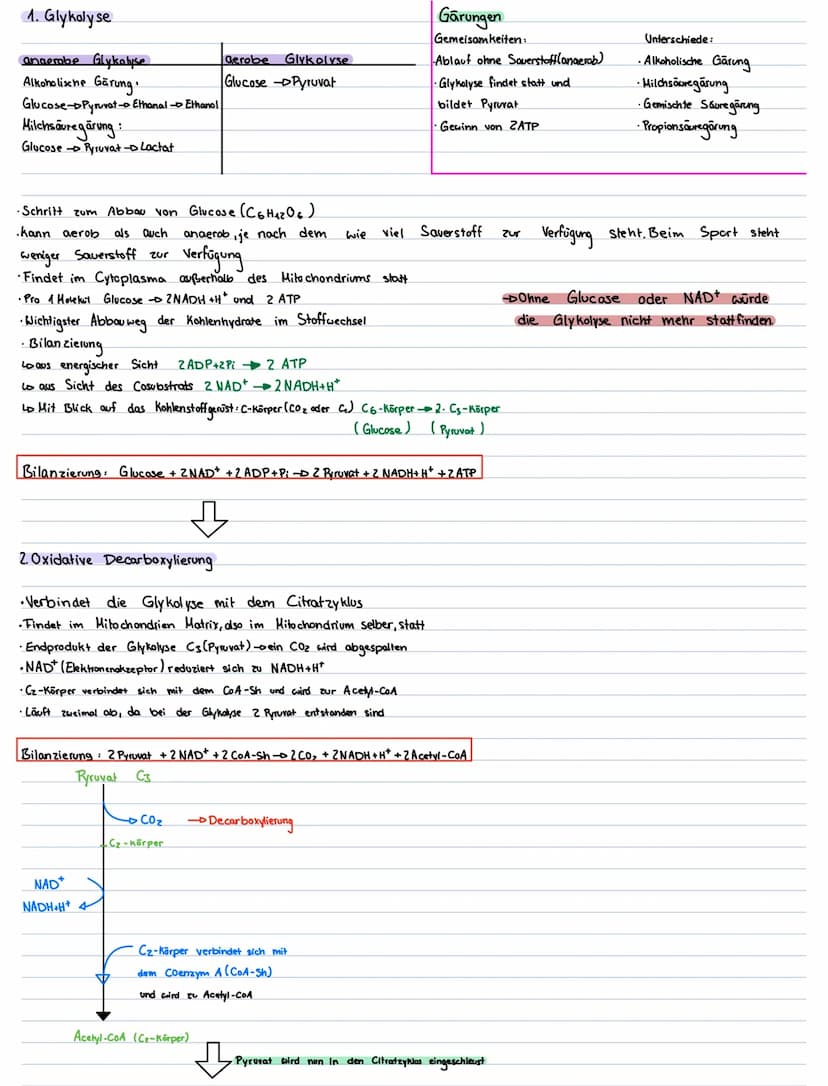 1. Glykolyse
anaerobe Glykolyse
Alkoholische Gärung:
Glucose→Pyruvat→Ethanal→Ethanol
Milchsäuregärung:
Glucose → Pyruvat → Lactat
aerobe Glykolyse
Glucose → Pyruvat
Gärungen
Gemeisamkeiten:
Ablauf ohne Sauerstoff(anaerob)
· Glykolyse findet statt und
bildet Pyruvat
· Gewinn von 2ATP
Unterschiede:
· Alkoholische Gärung
· Milchsäuregärung
· Gemischte Säuregärung
· Propionsäuregärung
· Schritt zum Abbau von Glucose (C₆H₁₂O₆)
· kann aerob als auch anaerob, je nach dem wie viel Sauerstoff zur Verfügung steht. Beim Sport steht
weniger Sauerstoff zur Verfügung
· Findet im Cytoplasma außerhalb des Mitochondriums statt
· Pro 1 Molekül Glucose → 2NADH+H⁺ und 2 ATP
· Wichtigster Abbauweg der Kohlenhydrate im Stoffwechsel
→Ohne Glucose oder NAD⁺ würde
die Glykolyse nicht mehr stattfinden
· Bilanzierung
↳ aus energischer Sicht 2ADP+2Pi → 2 ATP
↳ aus Sicht des Cosubstrats 2 NAD⁺ → 2NADH+H⁺
↳ Mit Blick auf das Kohlenstoffgerüst: C-Körper (CO₂ oder C₁) C₆-Körper → 2· C₃-Körper
(Glucose) (Pyruvat)
Bilanzierung: Glucose + 2NAD⁺ + 2 ADP+Pi → 2 Pyruvat + 2 NADH+H⁺ + 2ATP
2. Oxidative Decarboxylierung
· Verbindet die Glykolyse mit dem Citratzyklus
· Findet im Mitochondrien Matrix, also im Mitochondrium selber, statt
· Endprodukt der Glykolyse C₃(Pyruvat)→ein CO₂ wird abgespalten
· NAD⁺ (Elektronenakzeptor) reduziert sich zu NADH+H⁺
· C₂-Körper verbindet sich mit dem CoA-Sh und wird zur Acetyl-CoA
· Läuft zweimal ab, da bei der Glykolyse 2 Pyruvat entstanden sind
Bilanzierung: 2 Pyruvat + 2 NAD⁺ + 2 CoA-Sh → 2 CO₂ + 2NADH+H⁺ + 2 Acetyl-CoA
Pyruvat C₃
CO₂ → Decarboxylierung
C₂-Körper
NAD⁺
NADH+H⁺
C₂-Körper verbindet sich mit
dem Coenzym A (CoA-Sh)
und wird zu Acetyl-CoA
Acetyl-CoA (C₂-Körper)
Pyruvat wird nun in den Citratzyklus eingeschleust